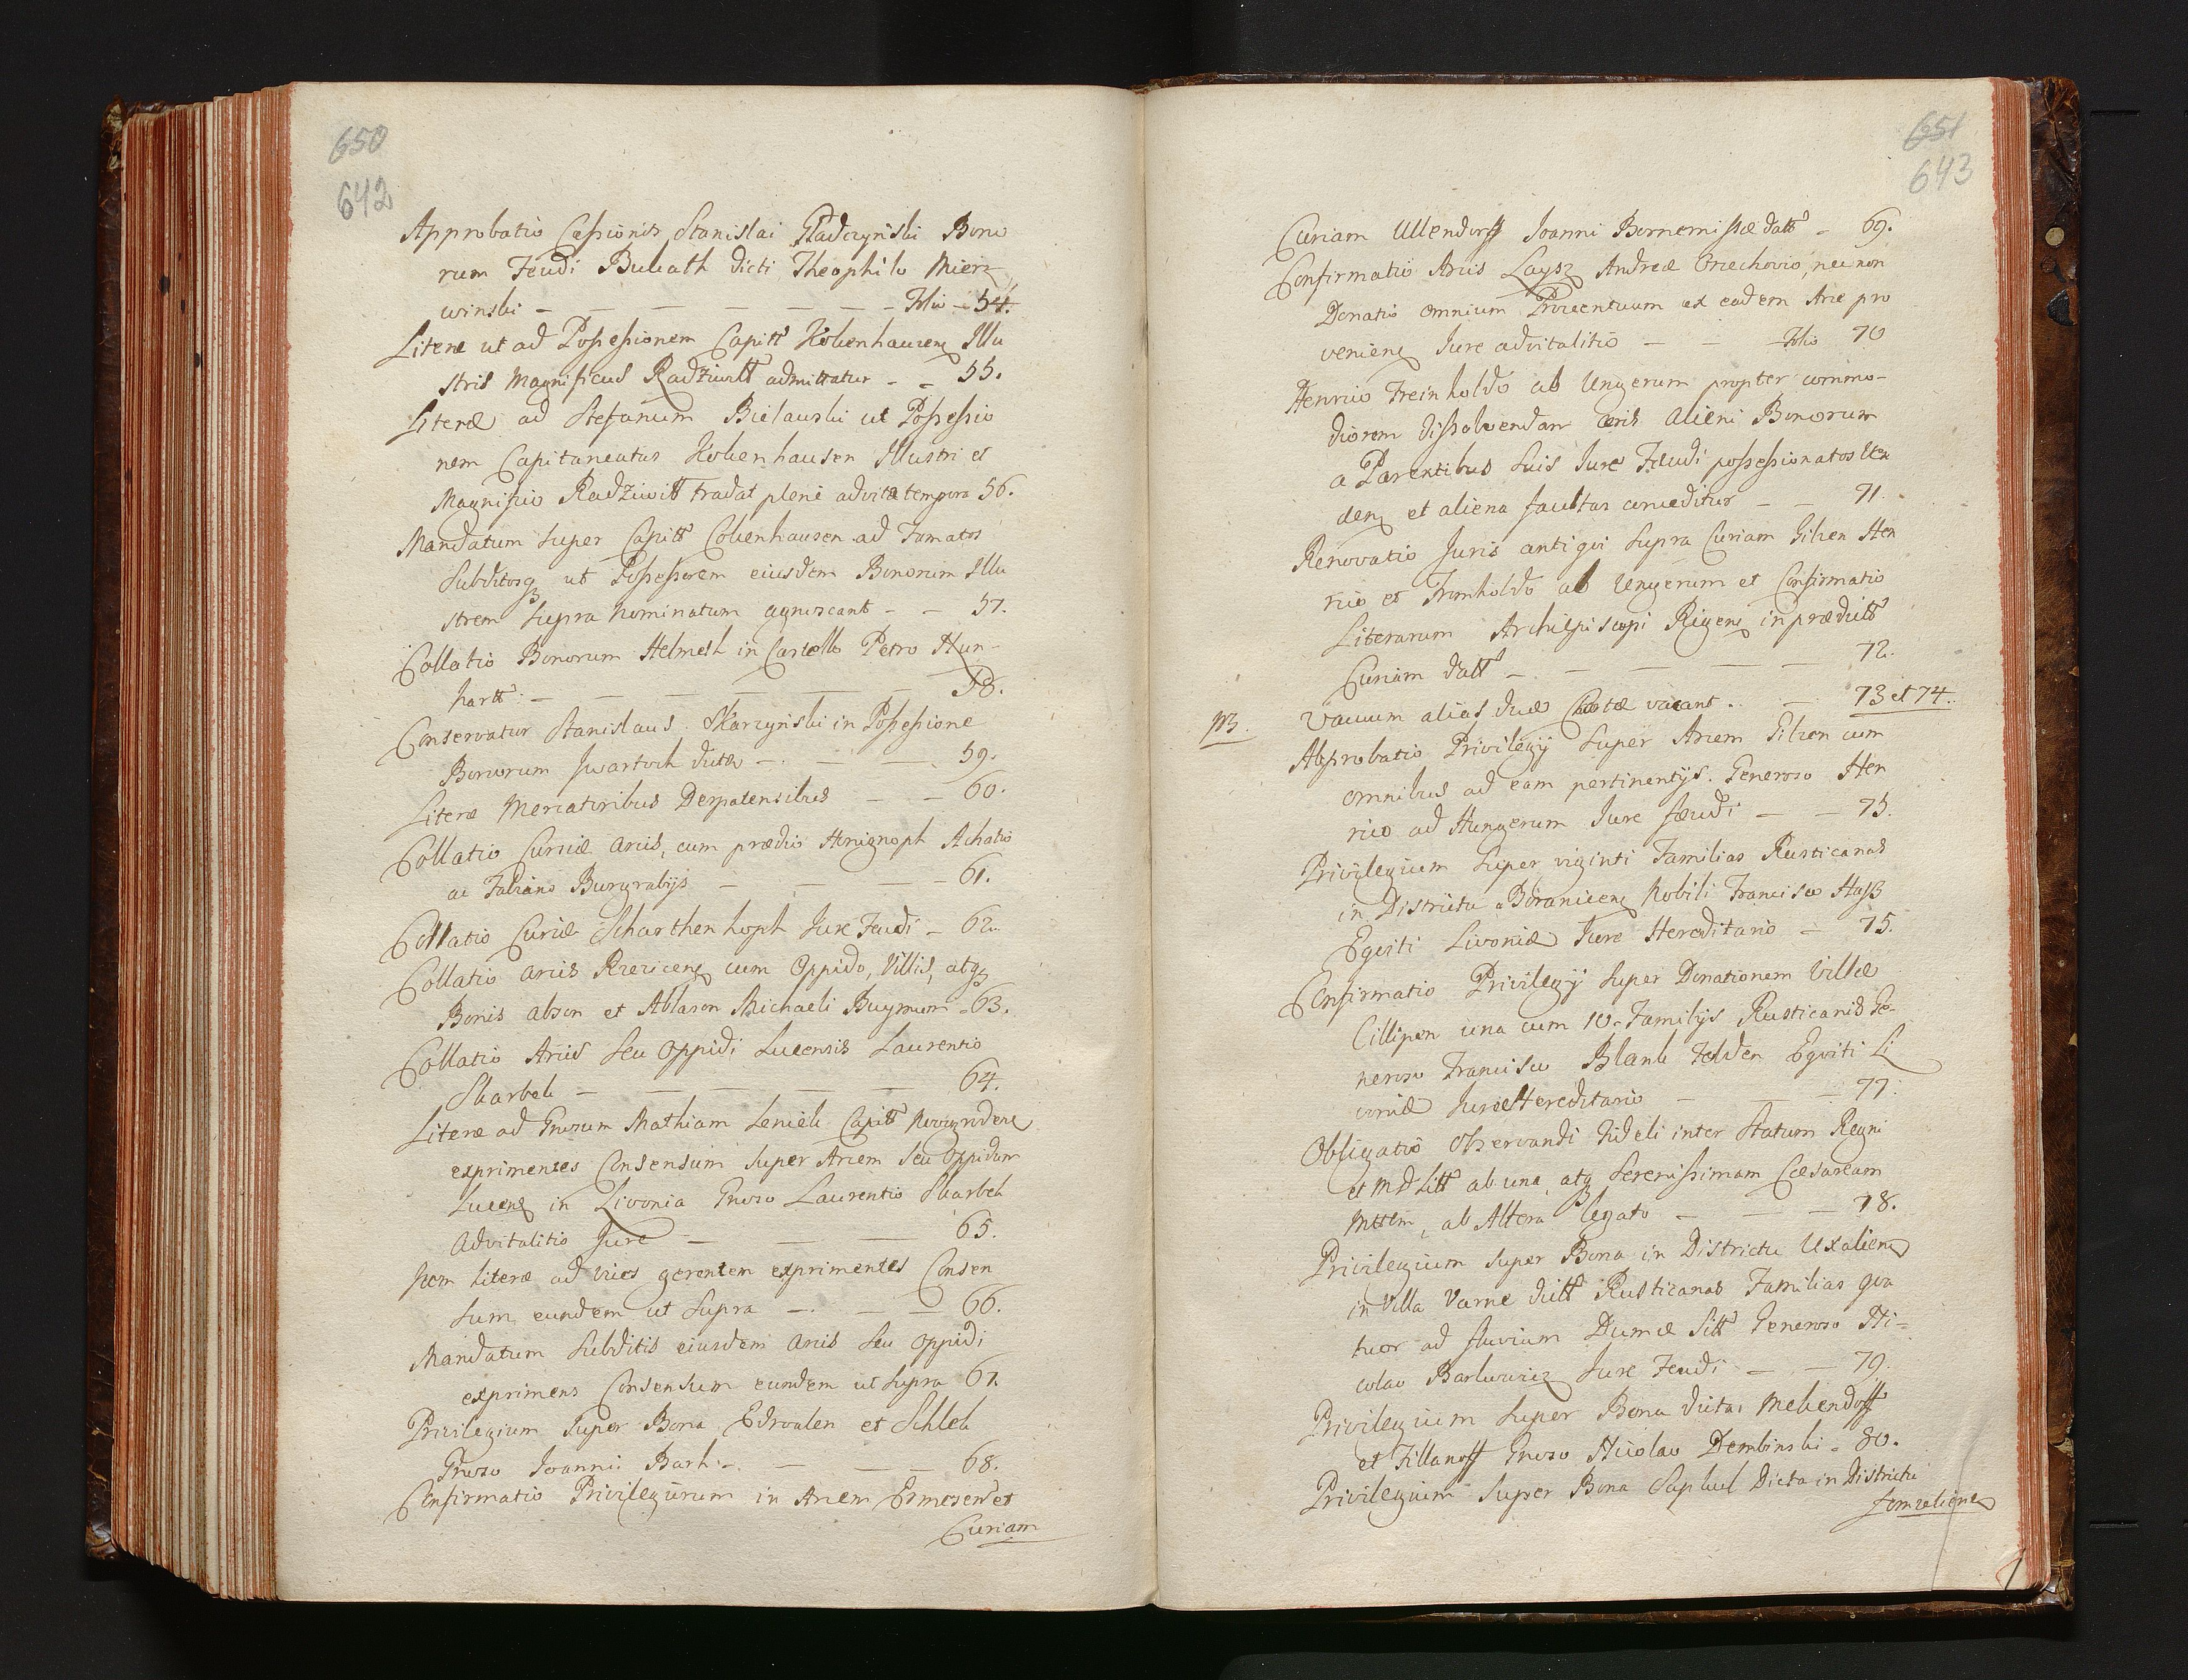 650
642
Approbatio Cessionis Stanislai Gladczynski Bono
rum Feudi Bulcath dicti Theophilo Mierz
winski - - - - - - Folio - 54.
Literæ ut ad Possessionem Capitt Kokenhausenẽ Illu
stris Magnificus Radziwill admittatur - - 55.
Literæ ad Stefanum Bielawski ut Possessio
nem Capitaneatus Kokenhausen Illustri et
Magnifico Radziwill tradat plenè advitæ tempora 56.
Mandatum super Capitt Cokenhausen ad Famatos
Subditosq3 ut Possessorem eiusdem Bonorum Illu
strem supra nominatum agnoscant - - 57.
Collatio Bonorum Helmeth in Castello Petro Hun-
hartt: - - - - - 58.
Conservatur Stanislaus Skarzynski in Possessione
Bonorum Jwartoch dictæ - - - 59.
Literæ Mercatoribus Derpatensibus - - 60.
Collatio Curiæ Arcis, cum prædio Honignoph Achatio
ac Fabiano Burgrabijs - - - 61.
Collatio Curiæ Scharthenhoph Jure Feudi - 62.
Collatio Arcis Rzezicenẽ cum Oppido, Villis, atq3
Bonis Abson et Ablason Michaeli Buymum - 63.
Collatio Arcis seu Oppidi Lucensis Laurentio
Skarbek - - - - - 64.
Literæ ad Gnosum Mathiam Leniek Capitt Novogrodenẽ
exprimentes Consensum super Arcem seu Oppidum
Lucenẽ in Livonia Gnoso Laurentio Skarbek
Advitalitio Jure - - - 65.
Item literæ ad vices gerentem exprimentes Consen
sum eundem ut supra - - - 66.
Mandatum Subditis eiusdem Arcis seu Oppidi
exprimens Consensum eundem ut supra 67.
Privilegium super Bona Edwalen et Schlek
Gnoso Joanni Bark - - - 68.
Confirmatio Privilegiorum in Arcem Ermesend et
Curiam
651
643
Curiam Ullendorff Joanni Bornemissæ datt - 69.
Confirmatio Arcis Laysz Andreæ Orzechovio, nec non
Donatio omnium Proventuum ex eadem Arce pro
venienẽ Jure advitalitio - - Folio 70
Henrico Freinholdo ab Ungerum propter commo-
diorem dissolvendam æris alieni Bonorum
a Parentibus suis Jure Feudi possessionatos Ven
denẽ et aliena facultas conceditur - - 71.
Renovatio Juris antiqui supra Curiam Gilsen Hen
rico et Fromholdo ab Ungerum et Confirmatio
Literarum Archiepiscopi Rigenẽ in prædictt
Curiam datt - - - - 72.
NB. Vacuum alias duæ Chartæ vacant - - 73 et 74.
Abprobatio Privilegij super Arcem Gilsen cum
omnibus ad eam pertinentijs. Generoso Hen
rico ad Hungerum Jure feudi - - 75.
Privilegium super viginti Familias Rusticanas
in Districtu Boranicenẽ Nobili Francisco Hass
Eqviti Livoniæ Jure Hereditario - 75.
Confirmatio Privilegij super Donationem Villæ
Cillipen una cum 10. Familijs Rusticanis Ge-
neroso Francisco Blank Felden Eqviti Li
voniæ Jure Hereditario - - - 77.
Obligatio Observandi Fideli inter Statum Regni
et M D Litt ab una, atq3 Serenissimam Cæsaream
Mttem, ab Altera legato - - - 78.
Privilegium super Bona in Districtu Uxalienẽ
in Villa Varne dictt Rusticanas Familias qva
tuor ad fluvium Dumæ Sitt Generoso Ni-
colao Barlwicz Jure Feudi - - 79.
Privilegium super Bona dicta Mekendorff
et Fillanoff Gnoso Nicolao Dembinski - 80.
Privilegium super Bona Sapkul Dicta in Districtu
Jomzelienẽ